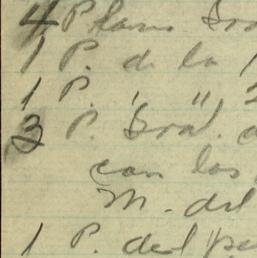 4 Planos Gra
1 P. de la
1 P. " "
3 P. Gral.
con los
M. del
1 P. del pe